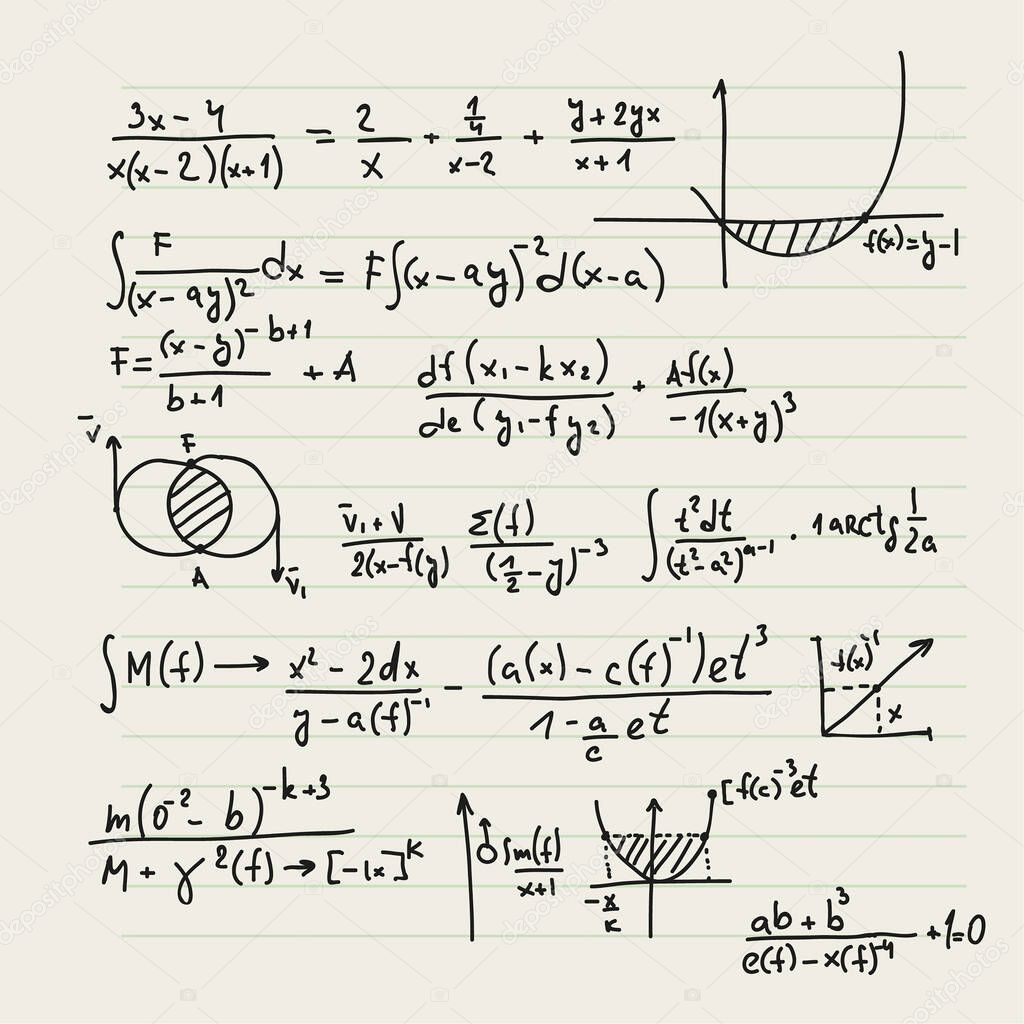 (3x - 4)/(x(x-2)(x+1)) = 2/x + (1/4)/(x-2) + (y+2yx)/(x+1)
f(x)=y-1
∫ F/(x-ay)² dx = F∫(x-ay)⁻²d(x-a)
F = (x-y)^(-b+1)/(b+1) + A
df(x₁-kx₂)/de(y₁-fy₂) + Af(x)/(-1(x+y)³)
v̄
F
A
v̄₁
(v̄₁+V)/(2(x-f(y)) Σ(f)/(1/2-y)⁻³ ∫ t²dt/(t²-a²)^(a-1) · 1arctg 1/2a
∫M(f) → (x²-2dx)/(y-a(f)⁻¹) - ((a(x)-c(f)⁻¹)et³)/(1-a/c et)
f(x)¹
x
m(0⁻²-b)^(-k+3)/(M+γ²(f)→[-1x]^K
∫m(f)/(x+1)
[f(c)⁻³et
-x/k
(ab+b³)/(e(f)-x(f)⁻⁴) +1=0
depositphotos